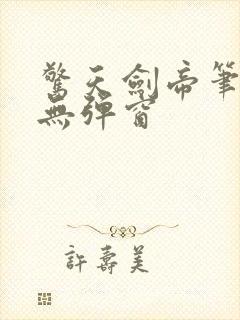 驚天劍帝筆
無彈窗
許壽美